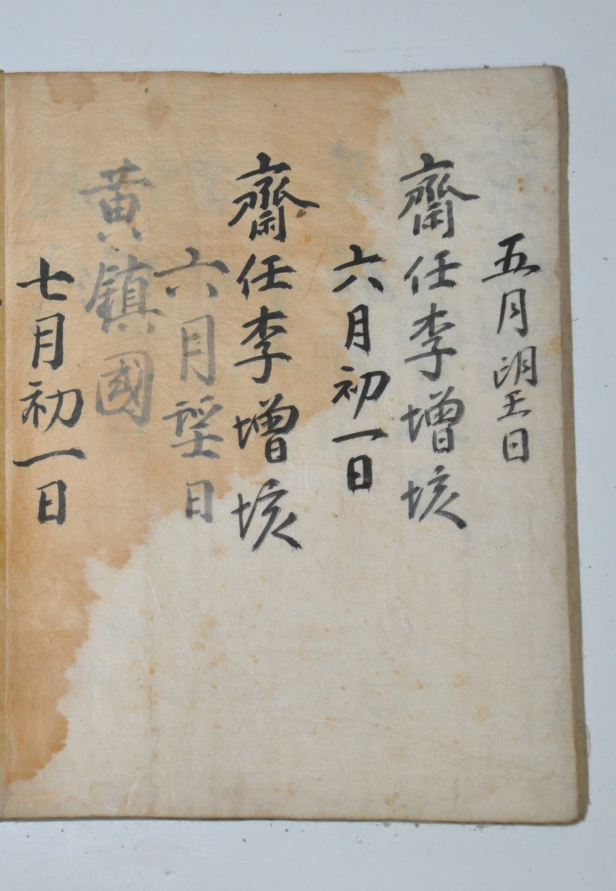 五月望日
齋任李增垓
六月初一日
齋任李增垓
六月望日
黃鎮國
七月初一日